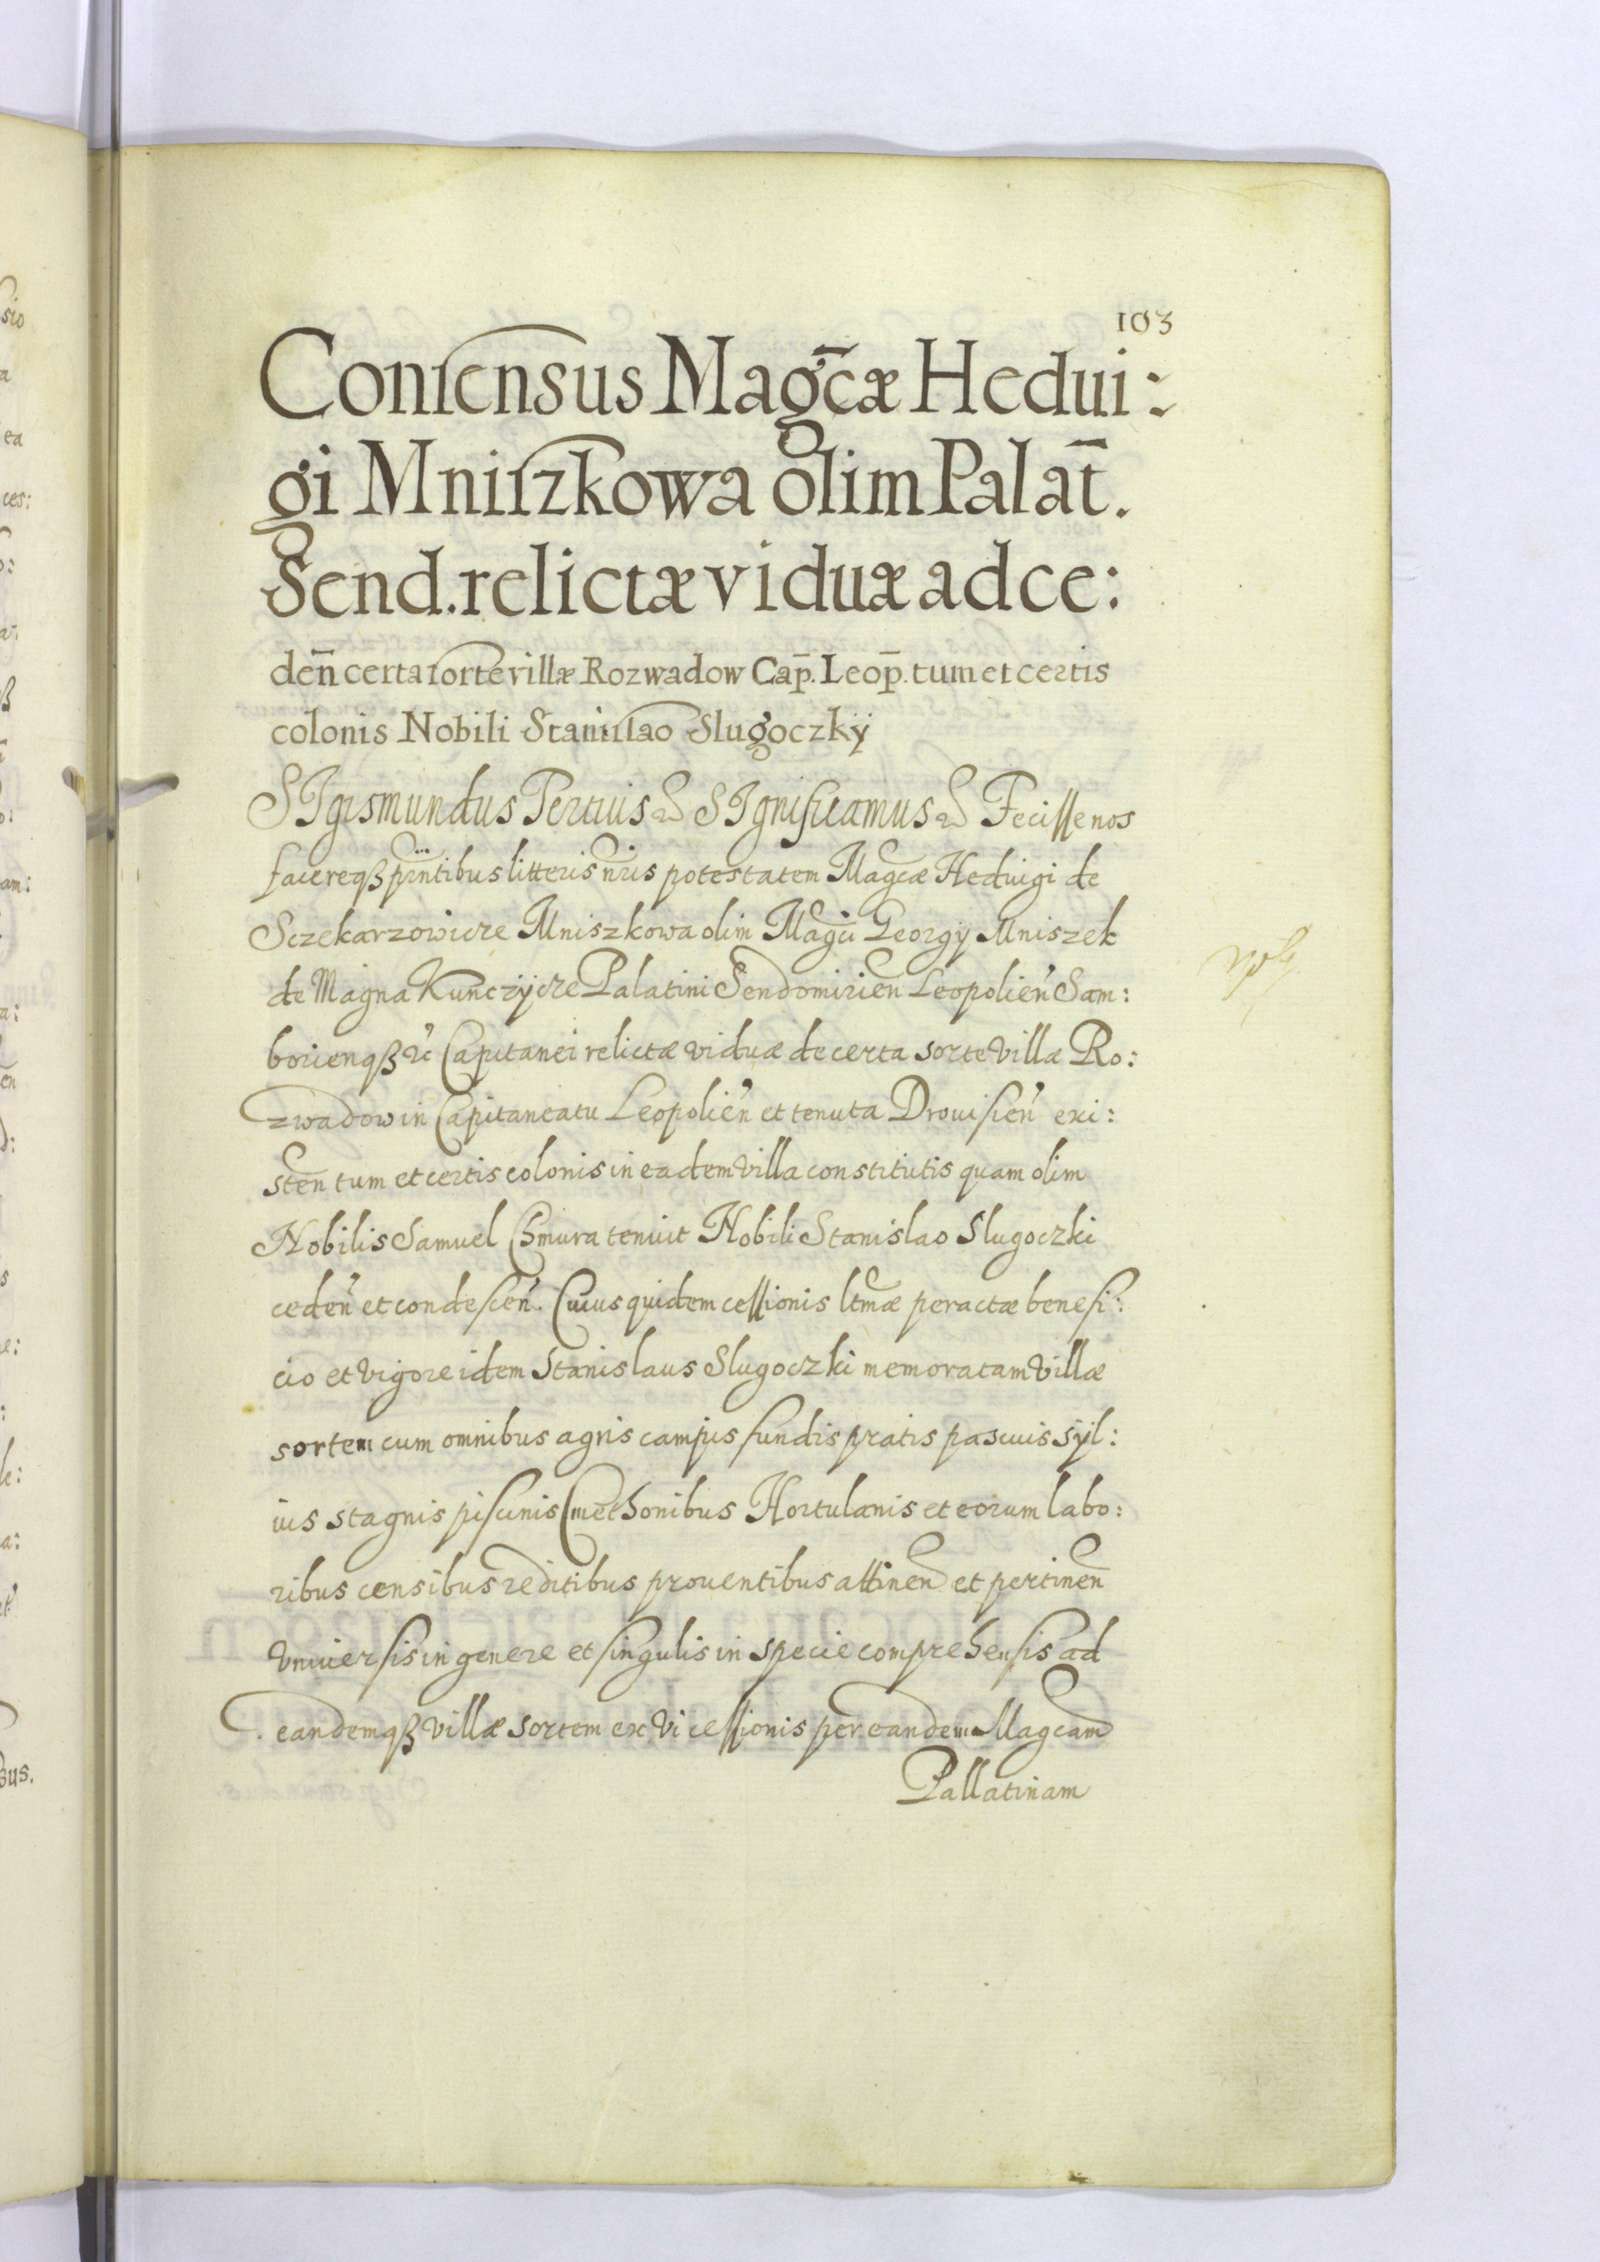 103
Consensus Magcæ Hedui:
gi Mniszkowa olim Palat̄.
Send. relictæ viduæ ad ce:
den̄ certa sorte villæ Rozwadow Cap̄. Leop̄. tum et certis
colonis Nobili Stanislao Slugoczkÿ
SIgismundus Tertius & SIgnificamus & Fecisse nos
facereqꝫ pr̄ntibus litteris nr̄is potestatem Magcæ Heduigi de
Sczekarzowicze Mniszkowa olim Magci Georgÿ Mniszek
de Magna Kunczÿcze Palatini Sendomirien̄ Leopolien̄ Sam:
borienqꝫ &c Capitanei relictæ viduæ de certa sorte villæ Ro:
zwadow in Capitaneatu Leopolien̄ et tenuta Drouisien̄ exi:
sten̄ tum et certis colonis in eadem villa constitutis quam olim
Nobilis Samuel Chmura tenuit Nobili Stanislao Slugoczki
ceden̄ et condescen̄. Cuius quidem cessionis ltmæ peractæ benefi:
cio et vigore idem Stanislaus Slugoczki memoratam villæ
sortem cum omnibus agris campis fundis pratis pascuis sÿl:
uis stagnis piscinis Cmethonibus Hortulanis et eorum labo:
ribus censibus reditibus prouentibus attinen̄ et pertinen̄
vniuersis in genere et singulis in specie comprehensis ad
eandemqꝫ villæ sortem ex vi cessionis per eandem Magcam
Pallatinam